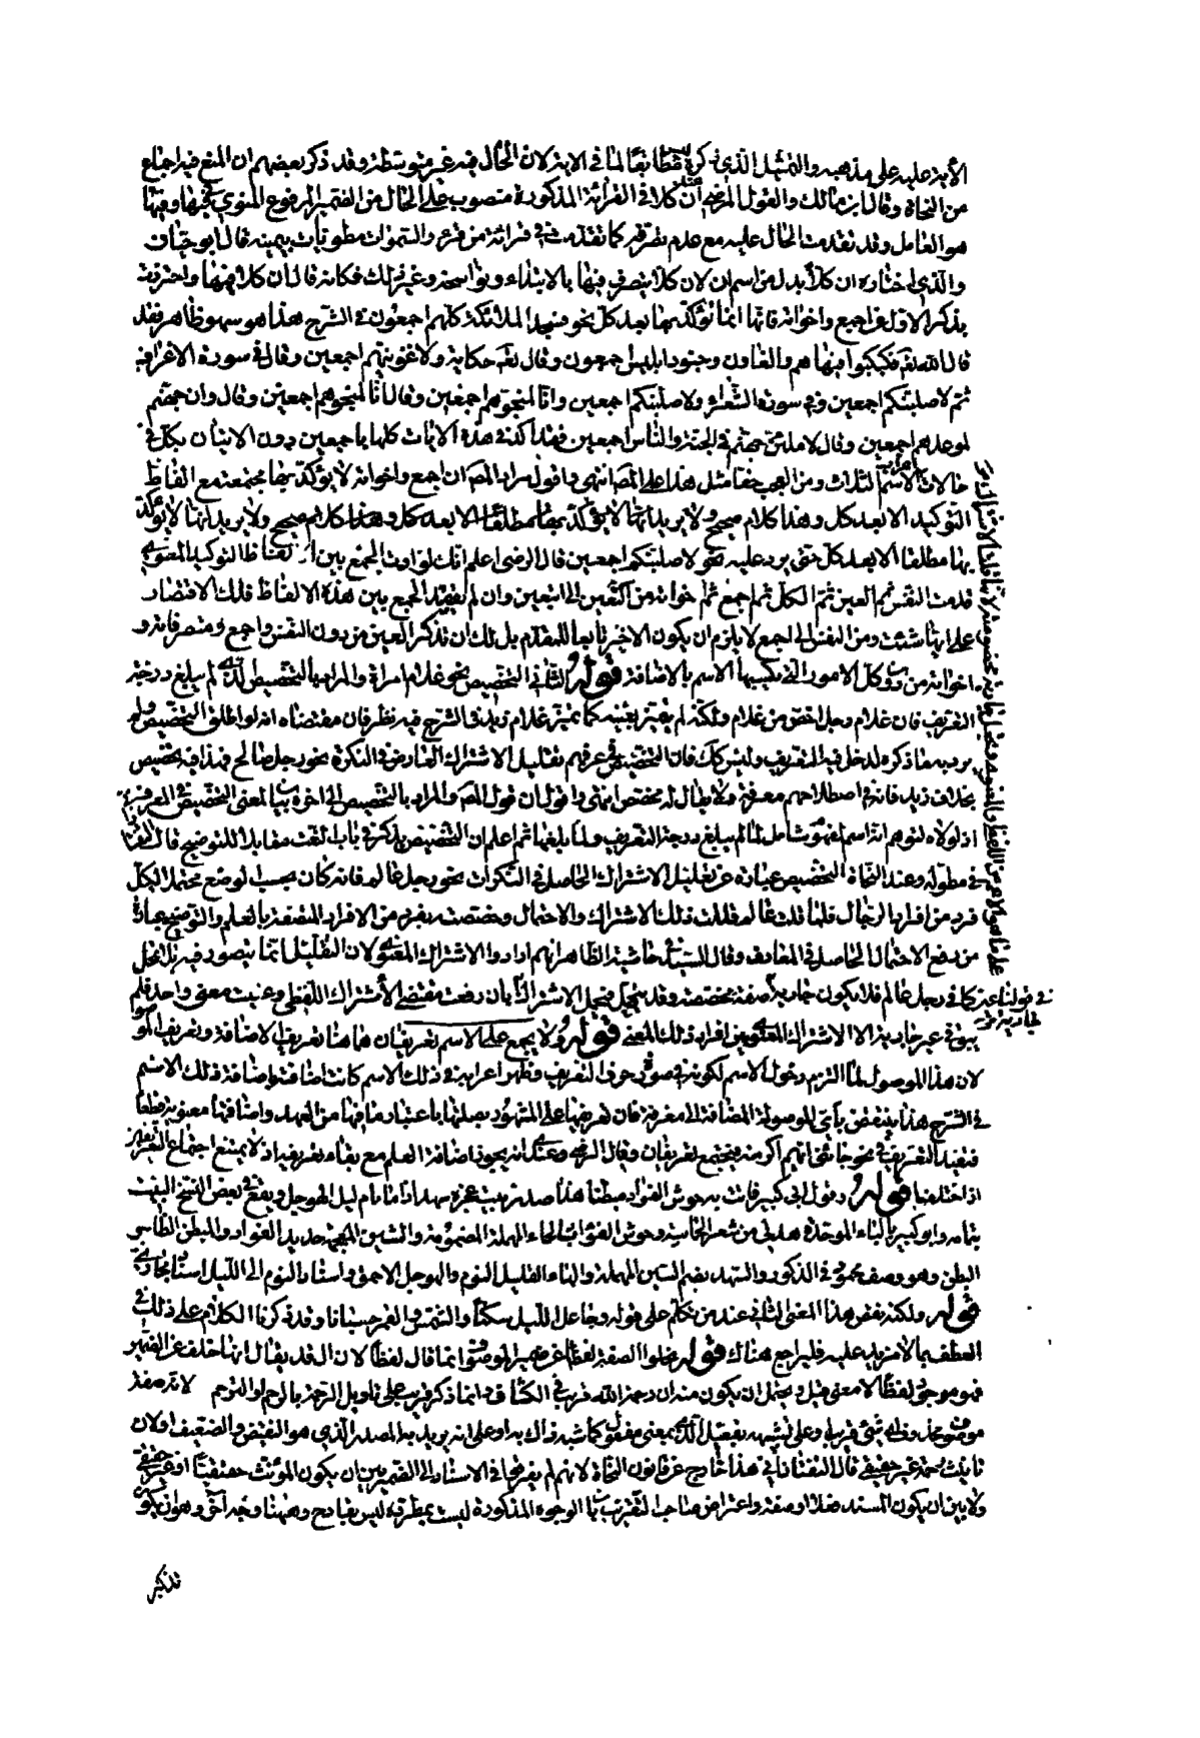 الآية عليه على مذهبه والتمثيل الذي ذكره ليس مطابقا لما في الآية لان الحال فيه غير متوسطة وقد ذكر بعضهم ان المنع فيه اجماع
من النحاة وقال ابن مالك والقول المرضي عندي ان كلا في القرائة المذكورة منصوب على الحال من الضمير المرفوع المنوي في فيها وفيها
هو العامل وقد تقدمت الحال عليه مع عدم تصرفه كما تقدمت في قرائة من قرء والسموات مطويات بيمينه قال ابو حيان
والذي اختاره ان كلا بدل من اسم ان لان كلا يتصرف فيها بالابتداء ونواسخه وغير ذلك فكانه قال ان كلا فيها واحترزت
بذكر الاول عن اجمع واخواته فانها انما تؤكد بها بعد كل نحو فسجد الملائكة كلهم اجمعون في الشرح هذا هو سهو ظاهر فقد
قال الله تعـ فكبكبوا فيها هم والغاون وجنود ابليس اجمعون وقال تعـ حكاية ولاغوينهم اجمعين وقال في سورة الاعراف
ثم لاصلبنكم اجمعين وفي سورة الشعراء ولاصلبنكم اجمعين وانا لمنجوهم اجمعين وقال انا لمنجوهم اجمعين وقال وان جهنم
لموعدهم اجمعين وقال لاملئن جهنم من الجنة والناس اجمعين فقد اكد في هذه الايات كلها باجمعين دون الاتيان بكل في
حالات اعراب الاسم الثلاث ومن العجب خفا مثل هذا على المصـ انتهى واقول مراد المصـ ان اجمع واخواته لا يؤكد بها مجتمعة مع الفاظ
التوكيد الا بعد كل وهذا كلام صحيح ولا يريد انها لا يؤكد بها مطلقا الا بعد كل وهذا كلام صحيح ولا يريد انها لا يؤكد
بها مطلقا الا بعد كل حتى يرد عليه نحو لاصلبنكم اجمعين قال الرضي اعلم انك لو اردت الجمع بين الفاظ التوكيد المعنوي
قدمت النفس ثم العين ثم الكل ثم اجمع ثم اخواته من اكتعين الى ابتعين وان لم تقصد الجمع بين هذه الالفاظ فلك الاقتصار
على ايها شئت ومن النفس الى اجمع لا يلزم ان يكون الاخير تابعا للمقدم بل لك ان تذكر العين من دون النفس واجمع ومتصرفاته و
اخواته من دون كل الامور التي يكسبها الاسم بالاضافة قوله الثاني التخصيص نحو غلام امراة والمراد بالتخصيص الذي لم يبلغ درجة
التعريف فان غلام رجل اخص من غلام ولكنه لم يتميز بعينه كما تميز غلام زيد في الشرح فيه نظر فان مقتضاه انه لو اطلق التخصيص ولم
يرد به ما ذكره لدخل فيه التعريف وليس كك فان التخصيص في عرفهم تقليل الاشتراك العارض في النكرة نحو رجل صالح فهذا فيه تخصيص
بخلاف زيد فانه في اصطلاحهم معرفة ولا يقال له مختص انتهى واقول ان قول المصـ والمراد بالتخصيص الى اخره بيان لمعنى التخصيص في العرف
اذ لولاه لتوهم انه اسم لمفهوم شامل لما لم يبلغ درجة التعريف ولما يبلغها ثم اعلم ان التخصيص يذكر في باب النعت مقابلا للتوضيح قال التفتازاني
في مطوله وعند النحاة التخصيص عبارة عن تقليل الاشتراك الحاصل في النكرات نحو رجل عالم فانه كان بحسب الوضع محتملا لكل
فرد من افراد الرجال فلما قلت عالم قللت ذلك الاشتراك والاحتمال وخصصت بفرد من الافراد المتصفة بالعلم والتوضيح عبارة
عن رفع الاحتمال الحاصل في المعارف وقال السيد في حاشيته الظاهر انهم ارادوا الاشتراك المعنوي لان التقليل انما يتصور فيه بلا تمحل
كما في رجل عالم فلا يكون جارية صفة مخصصة وقد يتمحل فيجعل الاشتراك بان رفعت مقتضى الاشتراك اللفظي وعينت معنى واحد فلم
يبق في عين جارية الا الاشتراك المعنوي بين افراد ذلك المعنى قوله ولا يجمع على الاسم تعريفان هما هنا تعريف الاضافة وتعريف الموصول
لان هذا الموصول لما التزم دخول الاسم لكونه في صورة حرف التعريف وظهر اعرابه في ذلك الاسم كانت اضافته اضافة ذلك الاسم
في الشرح هذا ينتقض باي الموصولة المضافة الى معرفة فان تعريفها على المشهور بصلتها باعتبار ما فيها من العهد واضافتها معنوية قطعا
فتفيد التعريف في نحو جائني ايهم اكرمته فيجتمع تعريفان وقال الرضي وعندي انه يجوز اضافة العلم مع بقاء تعريفه اذ لا يمتنع اجتماع التعريفين
اذا اختلفا قوله وقول ابي كبير فاتت به حوش الفؤاد مبطنا هذا صدر بيت عجزه سهدا اذا ما نام ليل الهوجل ويقع في بعض النسخ البيت
بتمامه وابو كبير بالباء الموحدة هذلي من شعراء الحماسة وحوش الفؤاد بالحاء المهملة المضمومة والشين المعجمة حديد الفواد والمبطن الضامر
البطن وهو وصف محمود في الذكور والسهد بضم السين المهملة والهاء القليل النوم والهوجل الاحمق واسناد النوم الى الليل اسناد مجازي
قوله ولكنه نقض هذا المعنى الثاني عند من تكلم على قوله وجاعل الليل سكنا والشمس والقمر حسبانا وقد ذكرنا الكلام على ذلك في
العطف بما لا مزيد عليه فليراجع هناك قوله فخلوا الصفة لفظا عن ضمير الموصوف انما قال لفظا لان ال قد يقال انها خلف عن الضمير
فهو موجود لفظا لا معنى قيل ويحتمل ان يكون منه ان رحمة الله قريب في الكشاف وانما ذكر قريب على تاويل الرحمة بالرحم او الترحم لانه صفة
موصوف محذوف اي شئ قريب او على تشبيهه بفعيل الذي بمعنى مفعول كما شبه ذاك به او على انه بزنة المصدر الذي هو النقيض والضغيب او لان
تانيث الرحمة غير حقيقي قال التفتازاني في هذا خارج عن قانون النحاة لانهم لم يفرقوا في الاسناد الى الضمير بين ان يكون المؤنث حقيقيا او غير حقيقي
ولا بين ان يكون المسند فعلا او صفة واعتراض صاحب التقريب بان الوجوه المذكورة ليست بمطردة ليس بقادح وههنا وجه اخر وهو ان يكون
تذكير